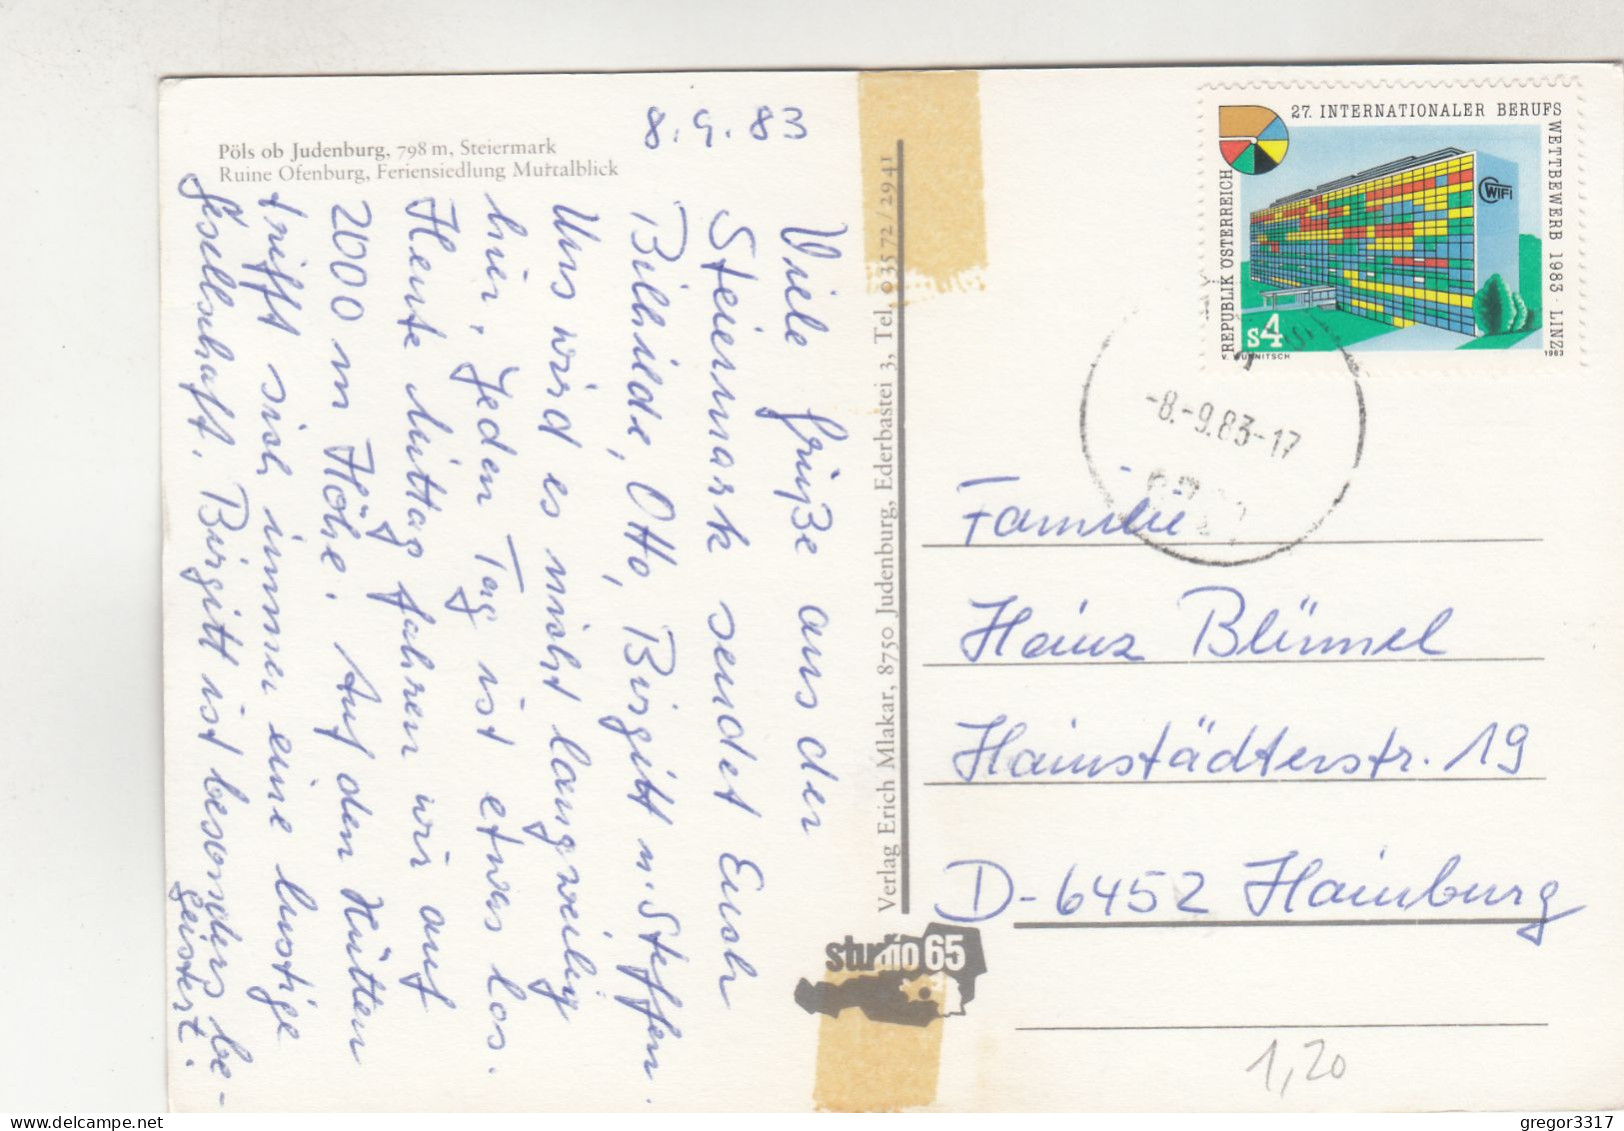 Pöls ob Judenburg, 798 m, Steiermark
Ruine Ofenburg, Feriensiedlung Murtalblick
8.9.83
Viele Grüße aus der
Steiermark sendet Euch
Bilhilde, Otto, Birgitt u. Steffen.
Uns wird es nicht langweilig
hier. Jeden Tag ist etwas los.
Heute Mittag fahren wir auf
2000 m Höhe. Auf den Hütten
trifft sich immer eine lustige
Gesellschaft. Birgitt ist besonders be-
geistert.
Verlag Erich Mlakar, 8750 Judenburg, Ederbastei 3, Tel. 03572/2941
studio 65
27. INTERNATIONALER BERUFS
WETTBEWERB 1983 · LINZ
REPUBLIK ÖSTERREICH
WIFI
S4
1983
-8.-9.83-17
Familie
Heinz Blümel
Hainstädterstr. 19
D-6452 Hainburg
1,20
gregor3317